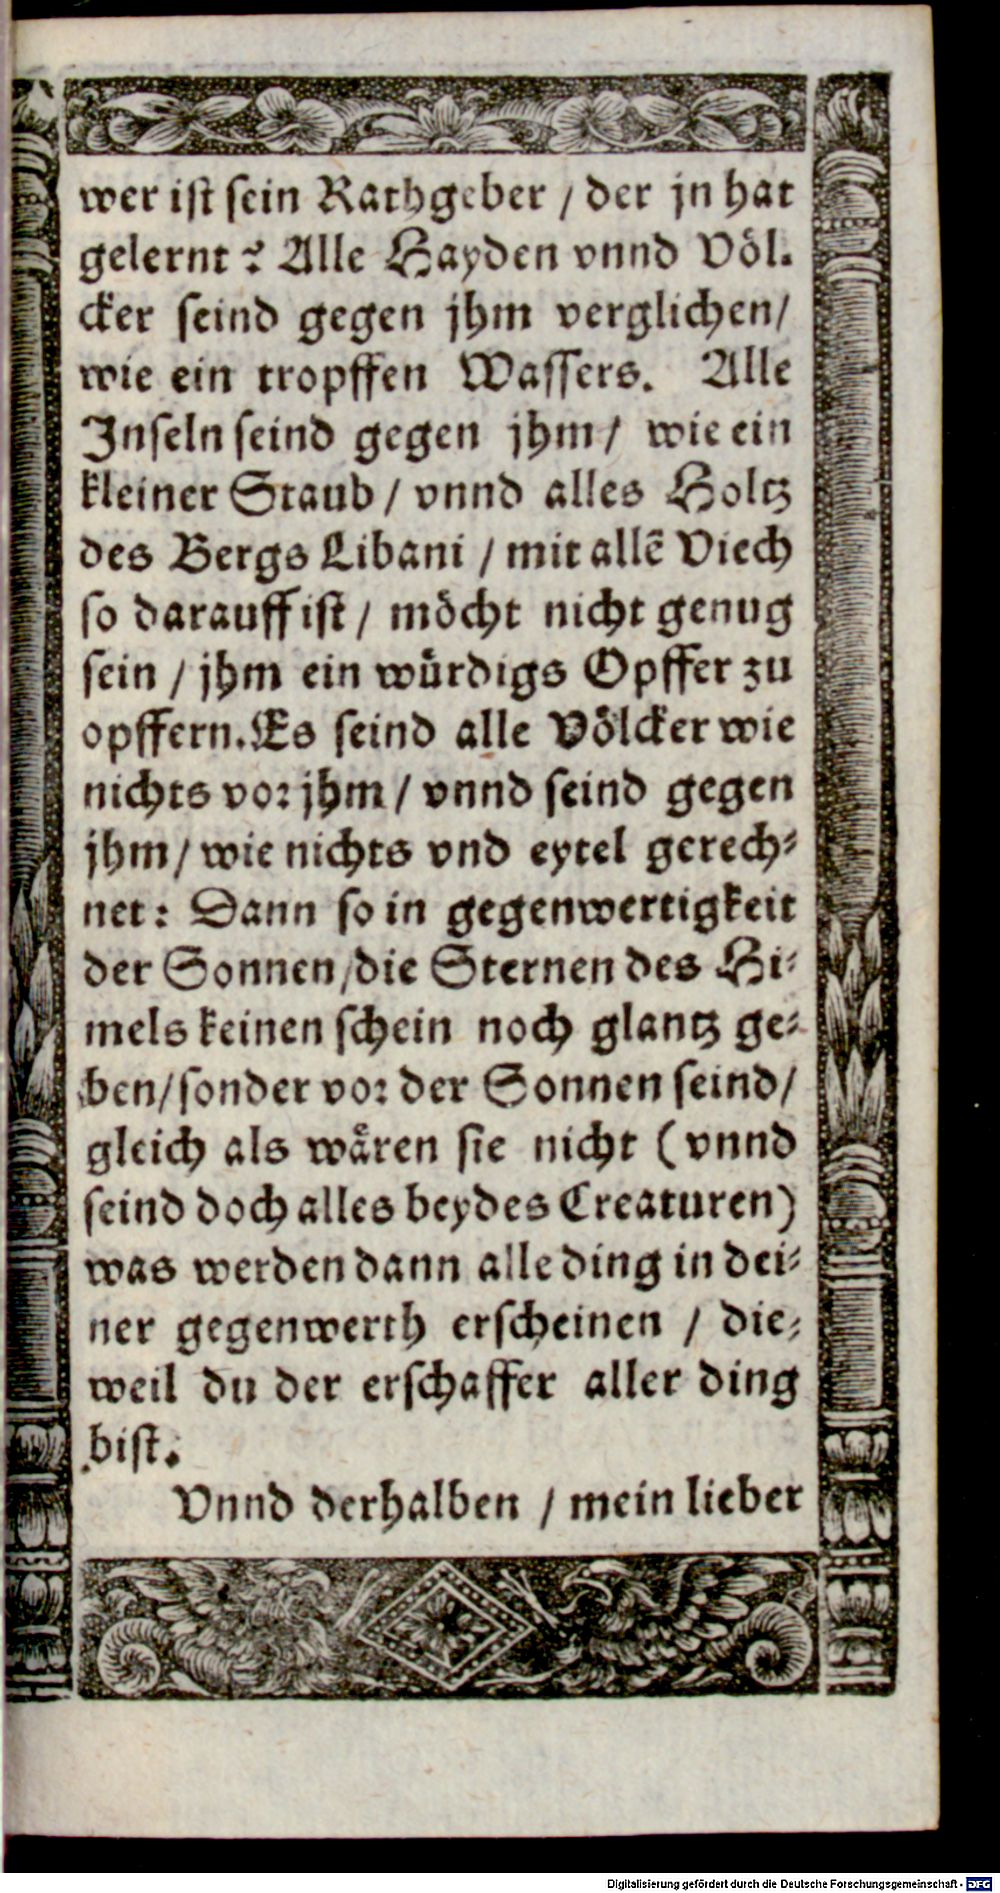 wer ist sein Rathgeber / der jn hat
gelernt? Alle Hayden vnnd Völ.
cker seind gegen jhm verglichen/
wie ein tropffen Wassers. Alle
Inseln seind gegen jhm/ wie ein
kleiner Staub / vnnd alles Holtz
des Bergs Libani / mit allẽ Viech
so darauff ist / möcht nicht genug
sein / jhm ein würdigs Opffer zu
opffern. Es seind alle Völcker wie
nichts vor jhm / vnnd seind gegen
jhm / wie nichts vnd eytel gerech-
net: Dann so in gegenwertigkeit
der Sonnen/die Sternen des Hi-
mels keinen schein noch glantz ge-
ben/sonder vor der Sonnen seind/
gleich als wären sie nicht (vnnd
seind doch alles beydes Creaturen)
was werden dann alle ding in dei-
ner gegenwerth erscheinen / die-
weil du der erschaffer aller ding
bist.
Vnnd derhalben / mein lieber
Digitalisierung gefördert durch die Deutsche Forschungsgemeinschaft - DFG